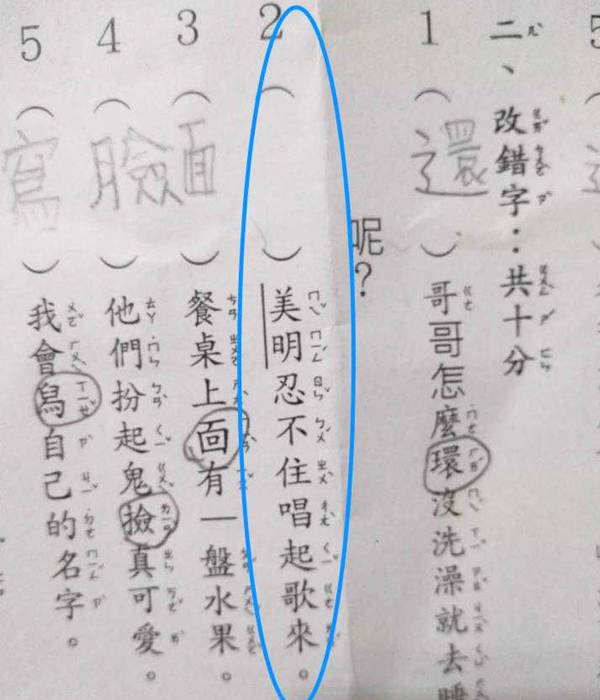 5
二、改錯字：共十分
1（還）哥哥怎麼環沒洗澡就去睡
呢？
2（　）美明忍不住唱起歌來。
3（面）餐桌上靣有一盤水果。
4（臉）他們扮起鬼撿真可愛。
5（寫）我會舄自己的名字。